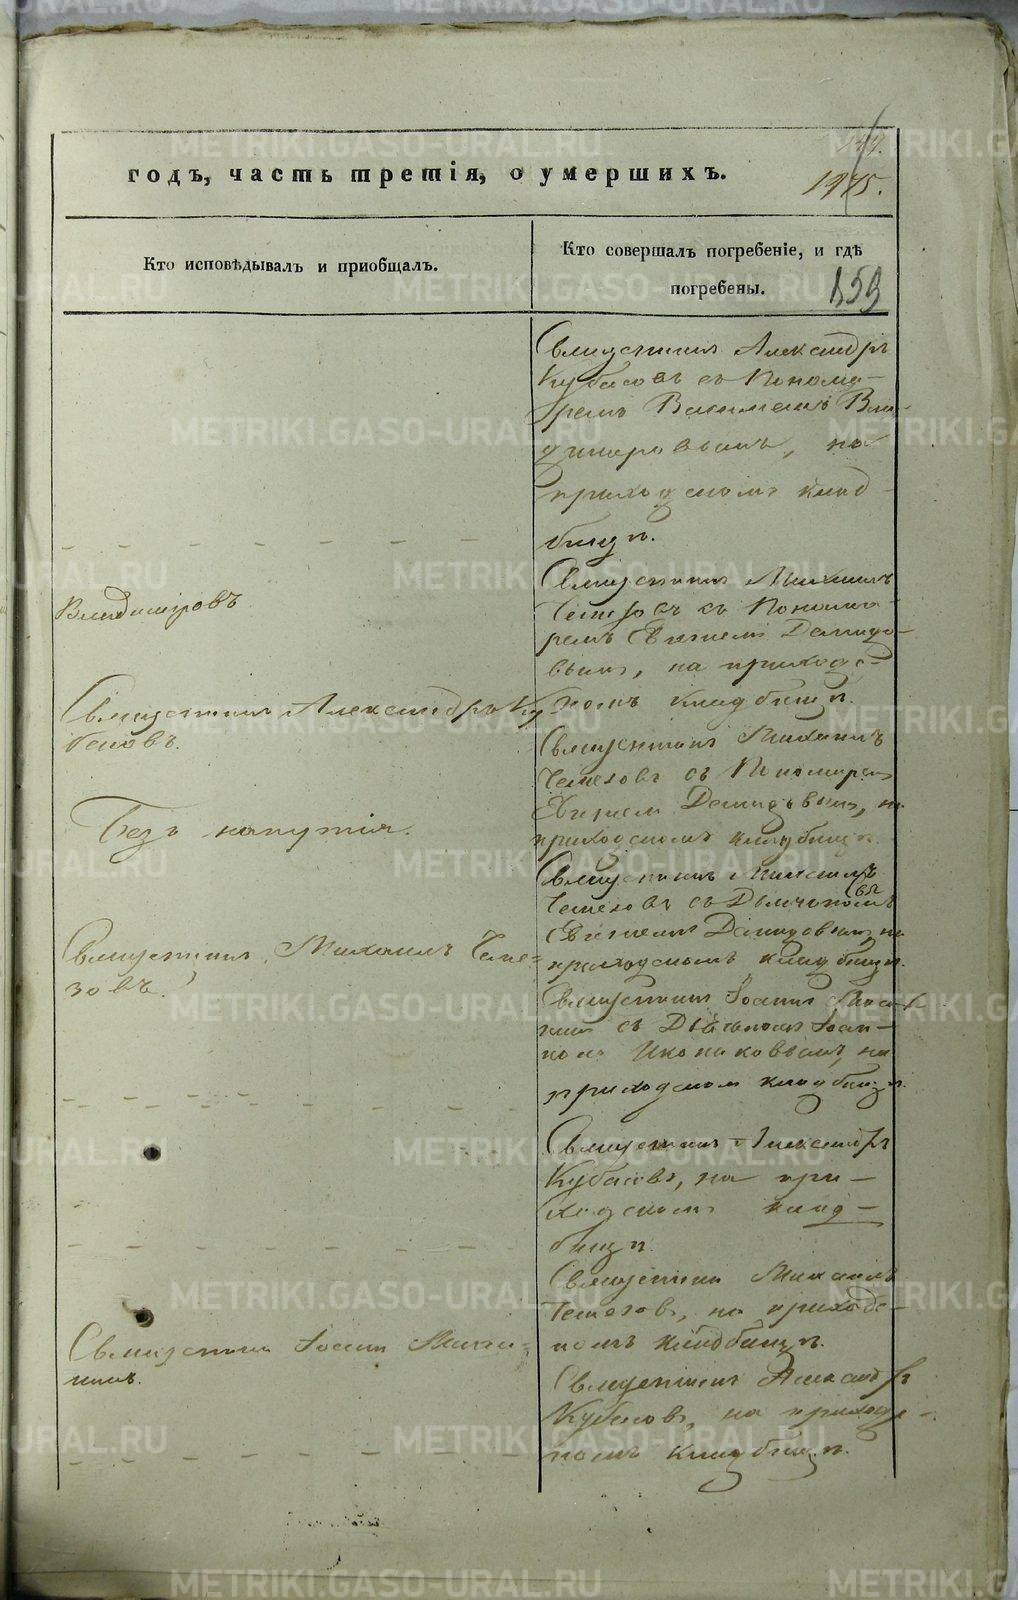 годъ, часть третія, о умершихъ.
Кто исповѣдывалъ и приобщалъ.
Кто совершалъ погребеніе, и гдѣ
погребены.
159
Священникъ Александръ
Кубасовъ съ Понома-
ремъ
димеровымъ, на
приходскомъ клад-
бищѣ.
Владиміровъ
Священникъ Михаилъ
съ Понома-
ремъ Евгеніемъ Демидо-
вымъ, на приходс-
комъ кладбищѣ.
Священникъ Александръ Ку-
басовъ.
Священникъ Михаилъ
съ Пономаремъ
Евгеніем Демидовымъ, на
приходскомъ кладбищѣ.
Безъ напутія.
Священникъ Михаилъ
съ Дьячкомъ
Евгеніемъ Демидовымъ, на
приходскомъ кладбищѣ.
Священникъ Михаилъ
Священникъ Іоаннъ
съ Дьячкомъ Іоан-
номъ Иконниковымъ, на
приходском кладбищѣ.
Священникъ Александръ
Кубасовъ, на при-
ходскомъ клад-
бищѣ.
Священник Михаилъ
на приходс-
комъ кладбищѣ.
Священник Іоанн
Священникъ Александръ
Кубасовъ, на приходс-
комъ кладбищѣ.
METRIKI.GASO-URAL.RU